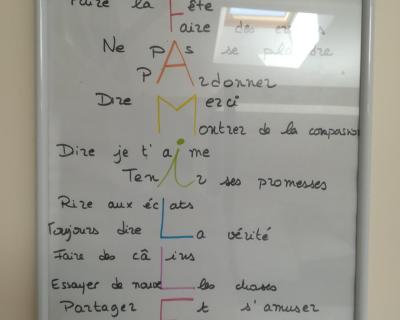 Faire la Fête
Faire des
Ne pAs se plaindre
PArdonner
Dire Merci
Montrer de la compassion
Dire je t'aime
Tenir ses promesses
Rire aux écLats
Toujours dire La vérité
Faire des câLins
Essayer de nouveLles choses
Partager Et s'amuser